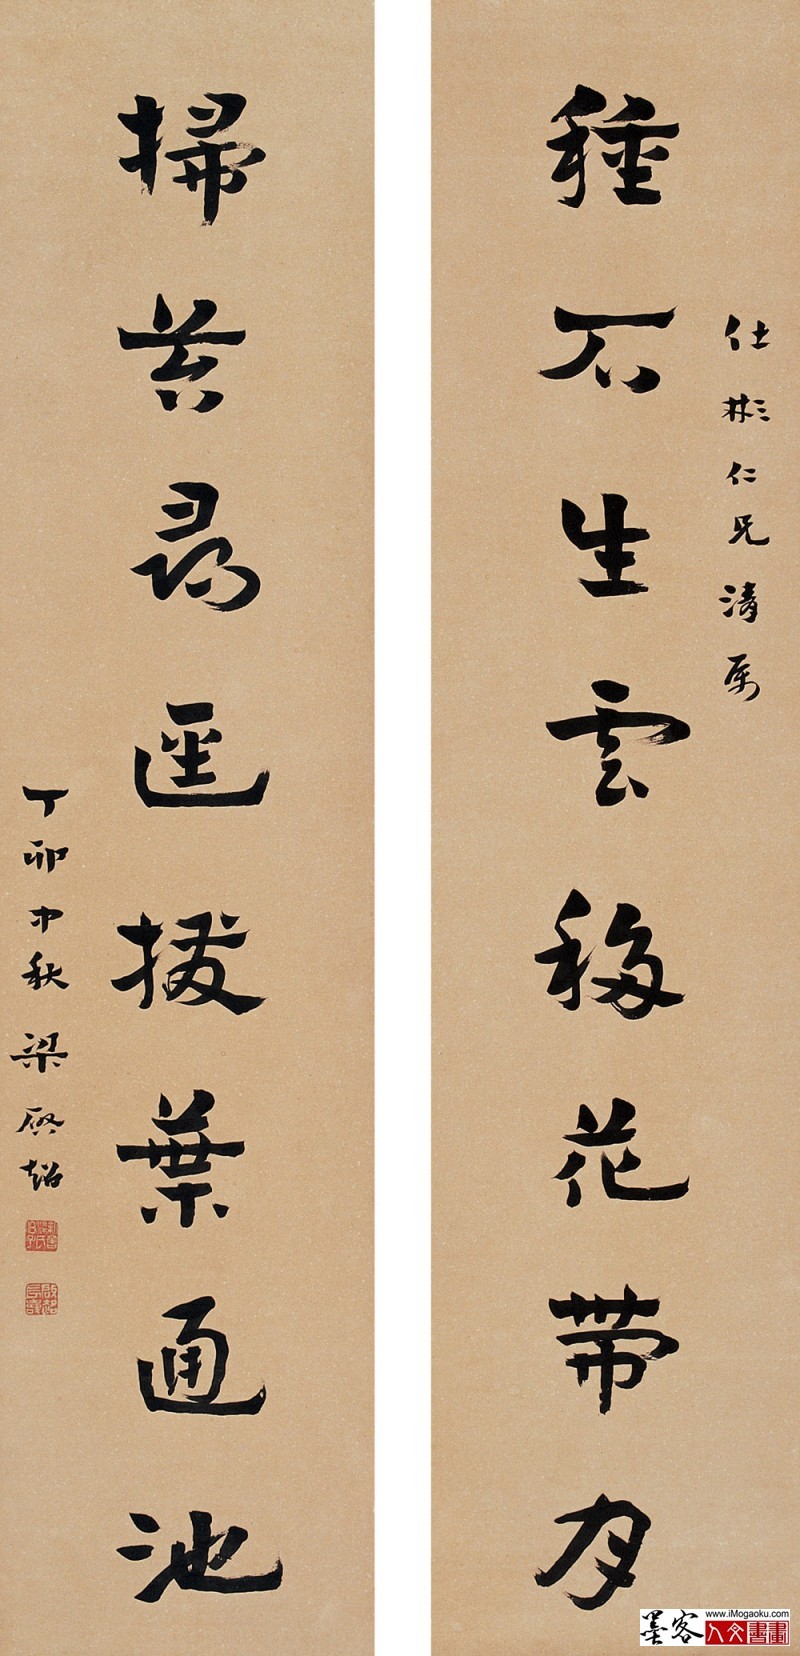 仕彬仁兄清属
種石生雲移花帶月
掃苔尋逕撥葉通池
丁卯中秋梁啟超
墨客
www.iMogaoku.com
人文書畫